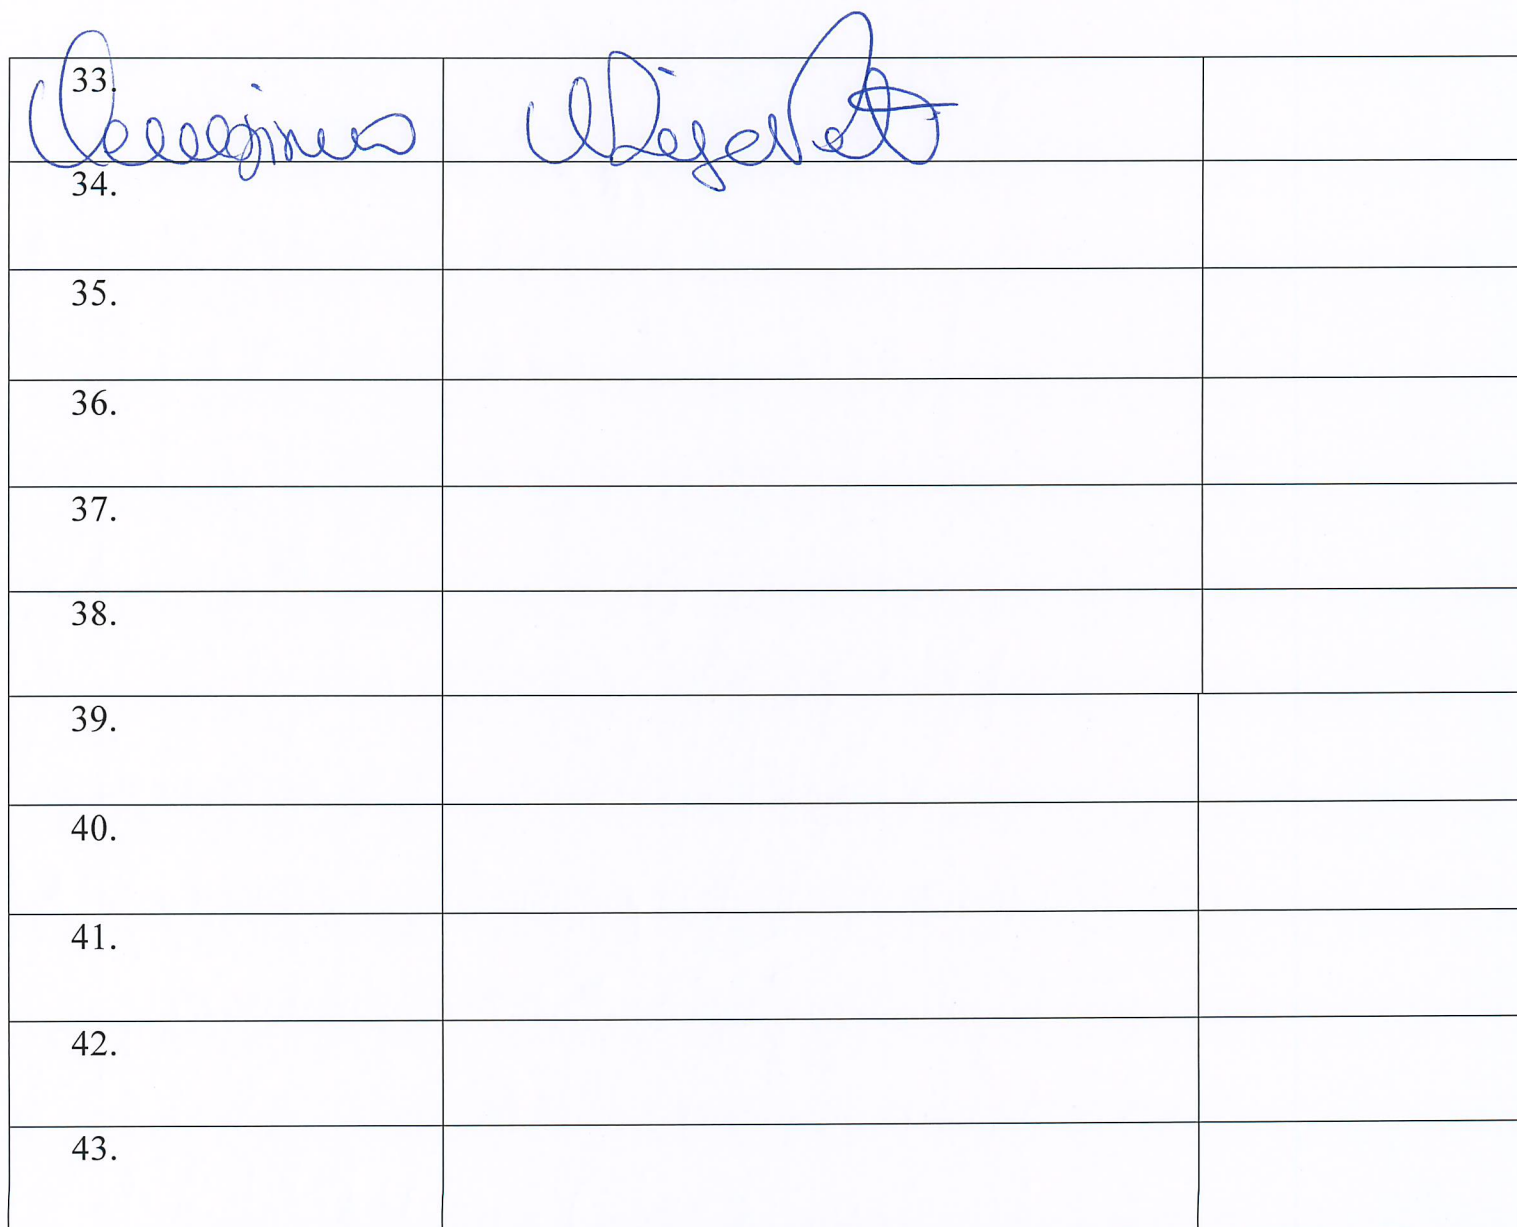 33.
34.
35.
36.
37.
38.
39.
40.
41.
42.
43.